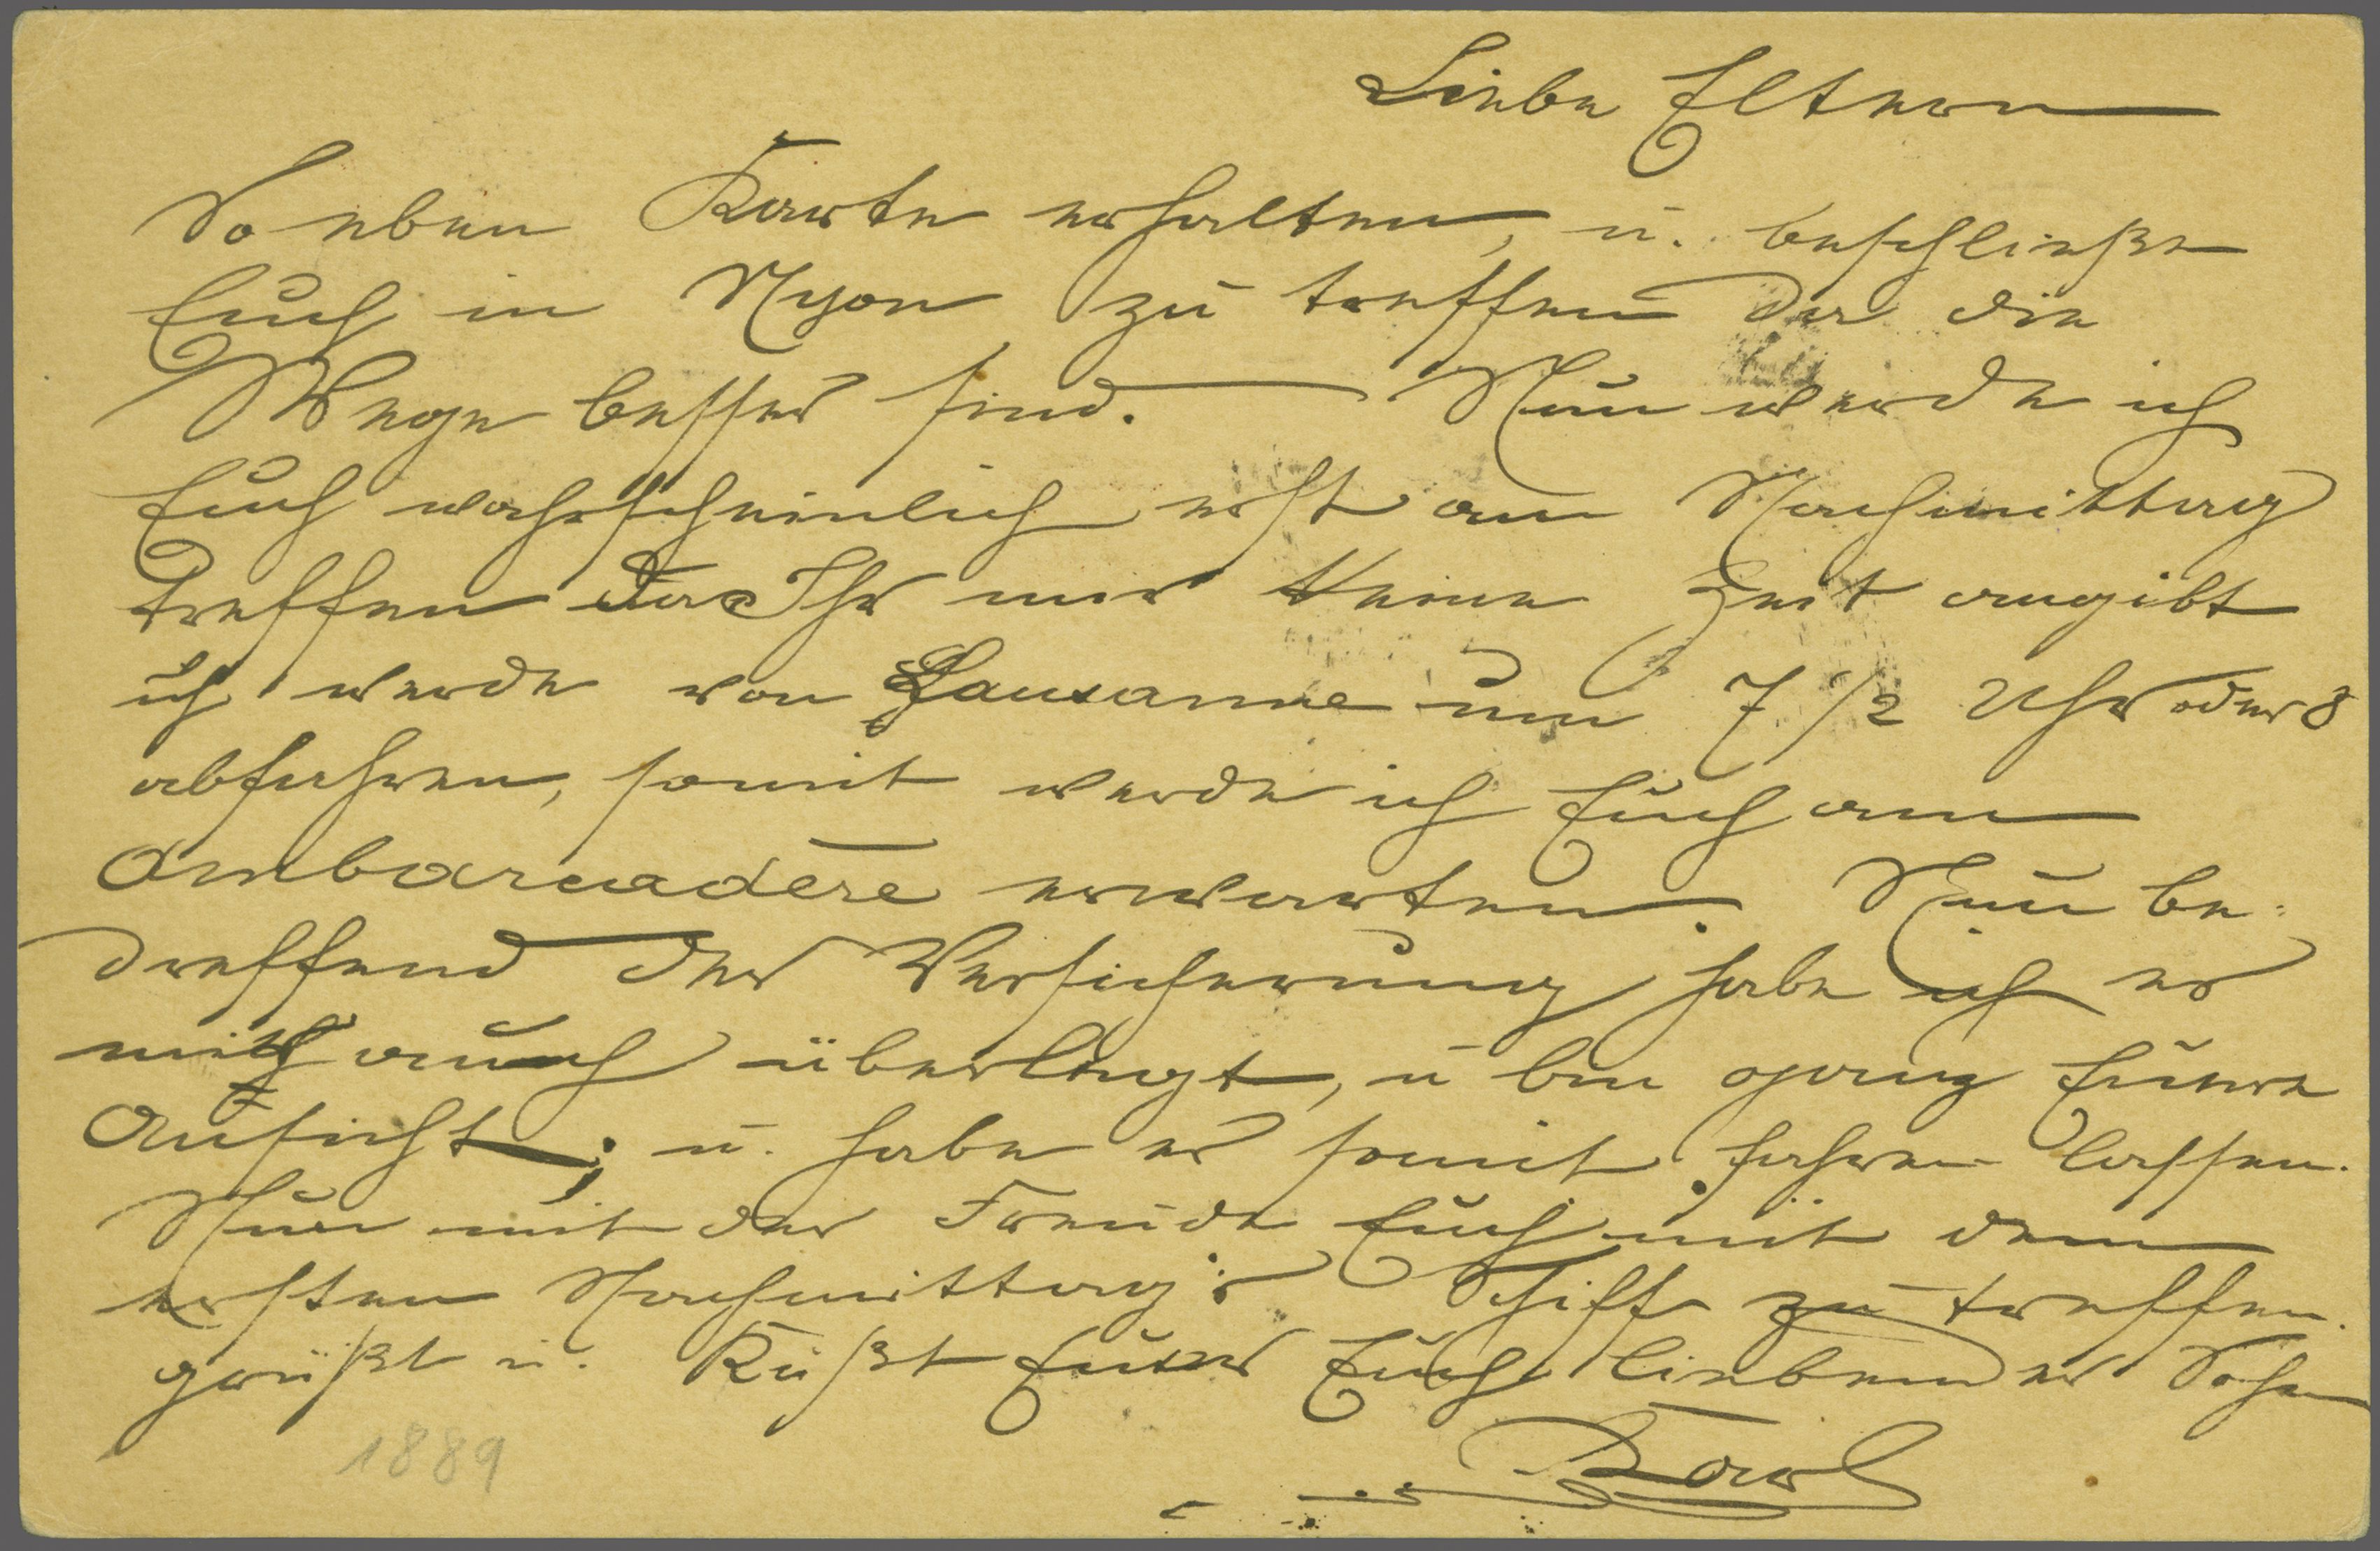 Liebe Eltern
So eben Karte erhalten, u. beschließe
Euch in Nyon zu treffen da die
Wege besser sind. Nun werde ich
Euch wahrscheinlich erst am Nachmittag
treffen da Ihr mir keine Zeit angibt
ich werde von Lausanne um 7 1/2 Uhr oder 8
abfahren, somit werde ich Euch am
Ambarcadère erwarten. Nun be-
dreffend der Versicherung habe ich es
mich auch überlegt, u bin ganz Eurer
Ansicht; u. habe es somit fahren lassen.
Nur mit der Freude Euch mit dem
ersten Nachmittag's Schiff zu treffen.
grüßt u. Küßt Euer Euch liebender Sohn
Karl
1889